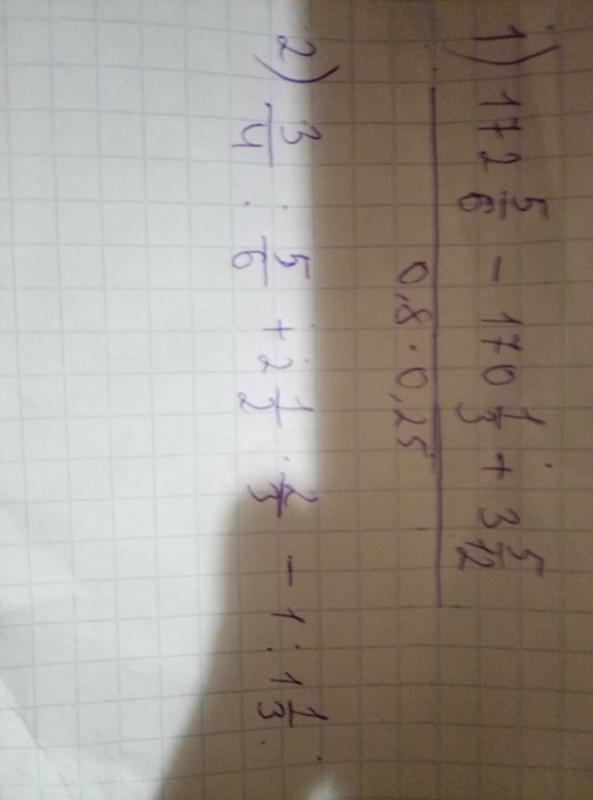 1) 172 5/6 - 170 1/3 + 3 5/12
0,8 · 0,25
2) 3/4 : 5/6 + 2 1/2 · 2/3 - 1 : 1 1/3.